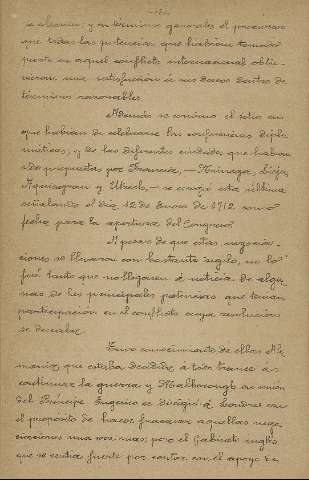 y en términos generales el procurar
que todas las potencias que habían tomado
parte en aquel conflicto internacional obtu-
vieran una satisfacción á sus deseos dentro de
términos razonables.
Además se convino el sitio en
que habían de celebrarse las conferencias diplo-
máticas; y de las diferentes ciudades que habían
sido propuestas por Francia, — Nimega, Lieja,
Aquisgran y Utrech, — se escogió esta última
señalando el día 12 de Enero de 1712 como
fecha para la apertura del Congreso.
A pesar de que estas negocia-
ciones se llevaron con bastante sigilo, no lo
fué tanto que no llegaran á noticia de algu-
nas de las principales potencias que tenían
participación en el conflicto cuya resolución
se deseaba.
Tuvo conocimiento de ellas Ale-
mania que estaba decidida á todo trance á
continuar la guerra y Malborough en unión
del Príncipe Eugenio se dirigió á Londres con
el propósito de hacer fracasar aquellas nego-
ciaciones una vez mas; pero el Gabinete inglés
que se sentía fuerte por contar con el apoyo de